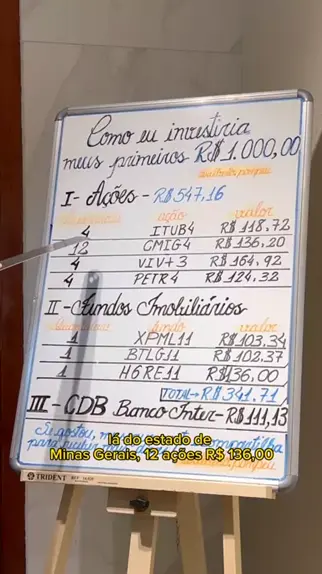 Como eu investiria
meus primeiros R$ 1.000,00
I - Ações - R$ 547,16
ação valor
4 ITUB4 R$ 118,72
12 CMIG4 R$ 136,20
4 VIVT3 R$ 164,92
4 PETR4 R$ 124,32
II - Fundos Imobiliários
fundo valor
1 XPML11 R$ 103,34
1 BTLG11 R$ 102,37
1 HGRE11 R$ 136,00
TOTAL → R$ 341,71
III - CDB Banco Inter - R$ 111,13
Se gostou, compartilha
para
lá do estado de
Minas Gerais, 12 ações R$ 136,00
TRIDENT